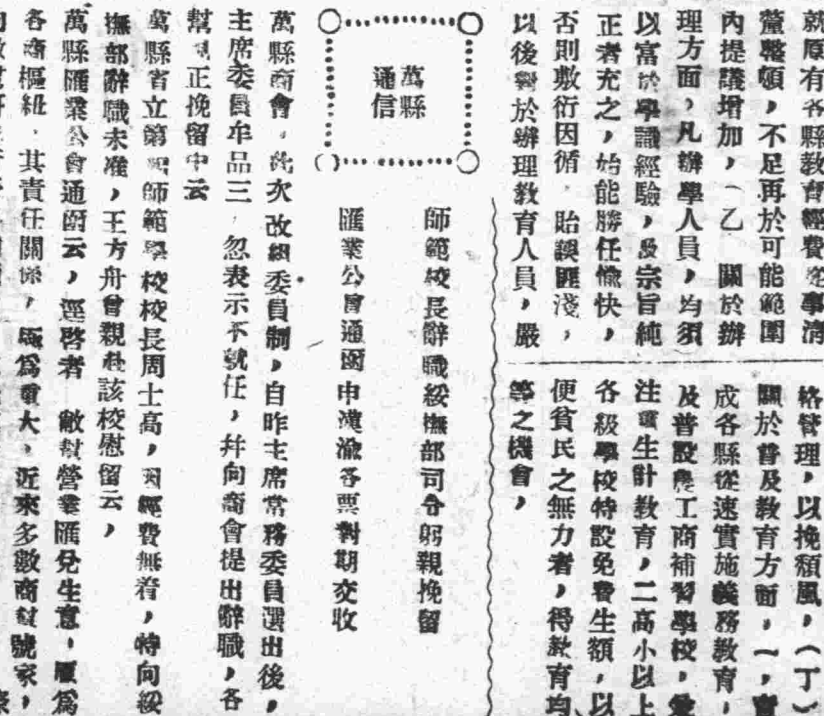 就原有各縣教育經費從事清
釐整頓，不足再於可能範圍
內提議增加，（乙　關於辦
理方面，凡辦學人員，均須
以富於學識經驗，及宗旨純
正者充之，始能勝任愉快，
否則敷衍因循，貽誤匪淺，
以後對於辦理教育人員，嚴
格管理，以挽頹風，（丁）
關於普及教育方面，一，實
成各縣從速實施義務教育，
及普設農工商補習學校，
注重生計教育，二高小以上
各級學校特設免費生額，以
便貧民之無力者，得教育均
等之機會，
萬縣
通信
師範校長辭職綏撫部司令躬親挽留
匯業公會通函申漢渝各票對期交收
萬縣商會，此次改組委員制，自昨主席常務委員選出後，
主席委員牟品三，忽表示不就任，幷向商會提出辭職，各
幫正挽留中云
萬縣省立第四師範學校校長周士高，因經費無着，特向綏
撫部辭職未准，王方舟曾親赴該校慰留云，
萬縣匯業公會通函云，逕啓者　敝幫營業匯兌生意，原爲
各商樞紐，其責任關係，至爲重大，近來多數商幫號家，